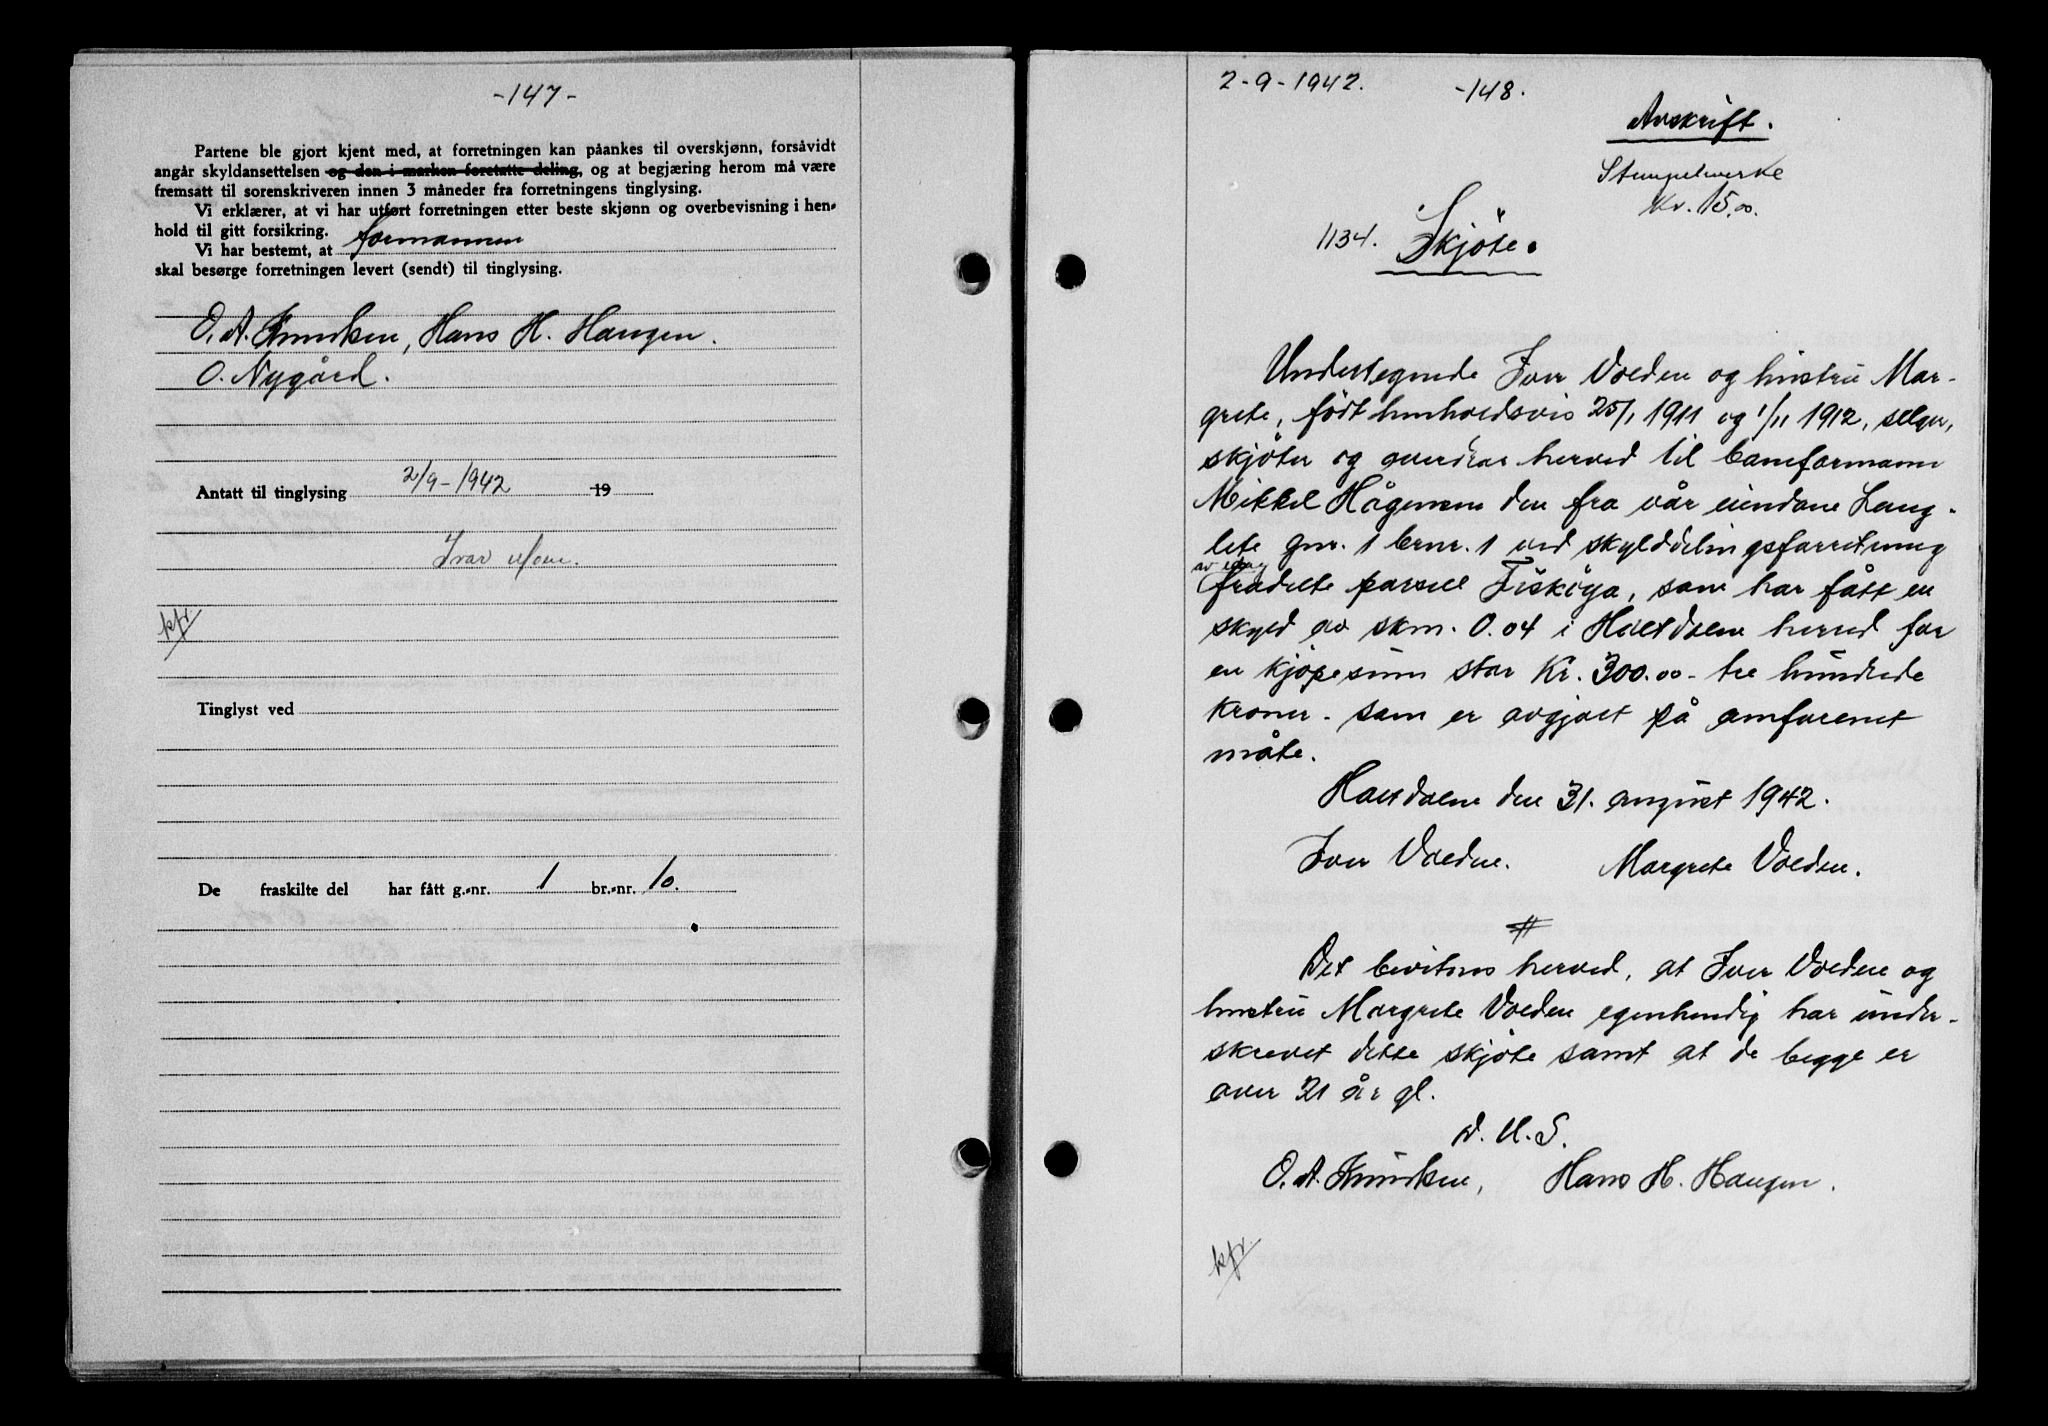 -147-
Partene ble gjort kjent med, at forretningen kan påankes til overskjønn, forsåvidt
angår skyldansettelsen og den i marken foretatte deling, og at begjæring herom må være
fremsatt til sorenskriveren innen 3 måneder fra forretningens tinglysing.
Vi erklærer, at vi har utført forretningen etter beste skjønn og overbevisning i hen-
hold til gitt forsikring.
Vi har bestemt, at formannen
skal besørge forretningen levert (sendt) til tinglysing.
O. A. Knudsen, Hans H. Haugen.
O. Nygård.
Antatt til tinglysing 2/9-1942 19
Ivar
kfr
Tinglyst ved
De fraskilte del har fått g.-nr. 1 br.-nr. 10.
2-9-1942. -148.
Avskrift.
Stempelmerke
Kr. 15,00.
1134. Skjöte.
Undertegnede Iver Volden og hustru Mar-
grete, født henholdsvis 25/1 1911 og 1/11 1912, selger,
skjöter og overdrar herved til baneformann
Mikkel Hågensen den fra vår eiendom Lang-
lete gnr. 1 brnr. 1 ved skylddelingsforretning
av idag
fradelte parsell Fisköya, som har fått en
skyld av skm. 0.04 i Haltdalen herred for
en kjöpesum stor Kr. 300.00 - tre hundrede
kroner - som er avgjort på omforenet
måte.
Haltdalen den 31. august 1942.
Iver Volden. Margrete Volden.
Det bevitnes herved, at Iver Volden og
hustru Margrete Volden egenhendig har under-
skrevet dette skjöte samt at de begge er
over 21 år gl.
D. U. S.
O. A. Knudsen, Hans H. Haugen.
kfr.